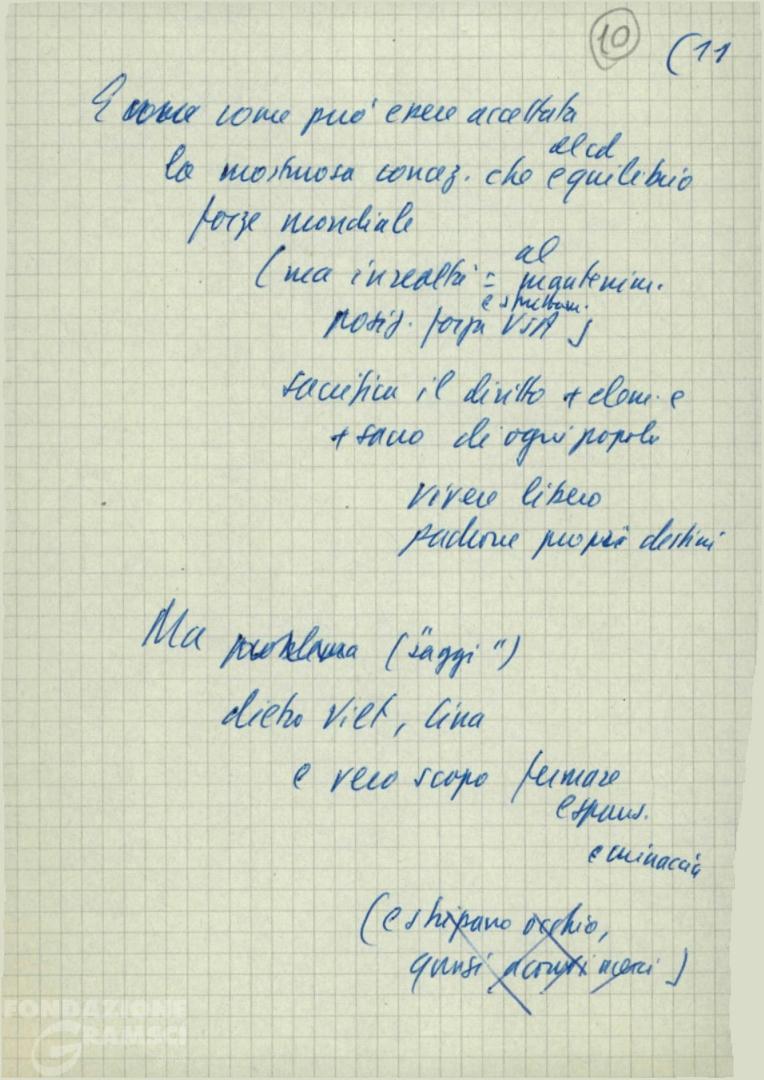 10 (11
E come come può essere accettata
al cd
la mostruosa concez. che equilibrio
forze mondiale
(ma in realtà = al mantenim.
e
posiz. forza USA)
sacrifica il diritto + elem. e
+ sacro di ogni popolo
vivere libero
padrone propri destini
Ma problema ("saggi")
dietro Viet, Cina
e vero scopo fermare
espans.
e minaccia
(e strizzano occhio,
quasi)
FONDAZIONE
GRAMSCI